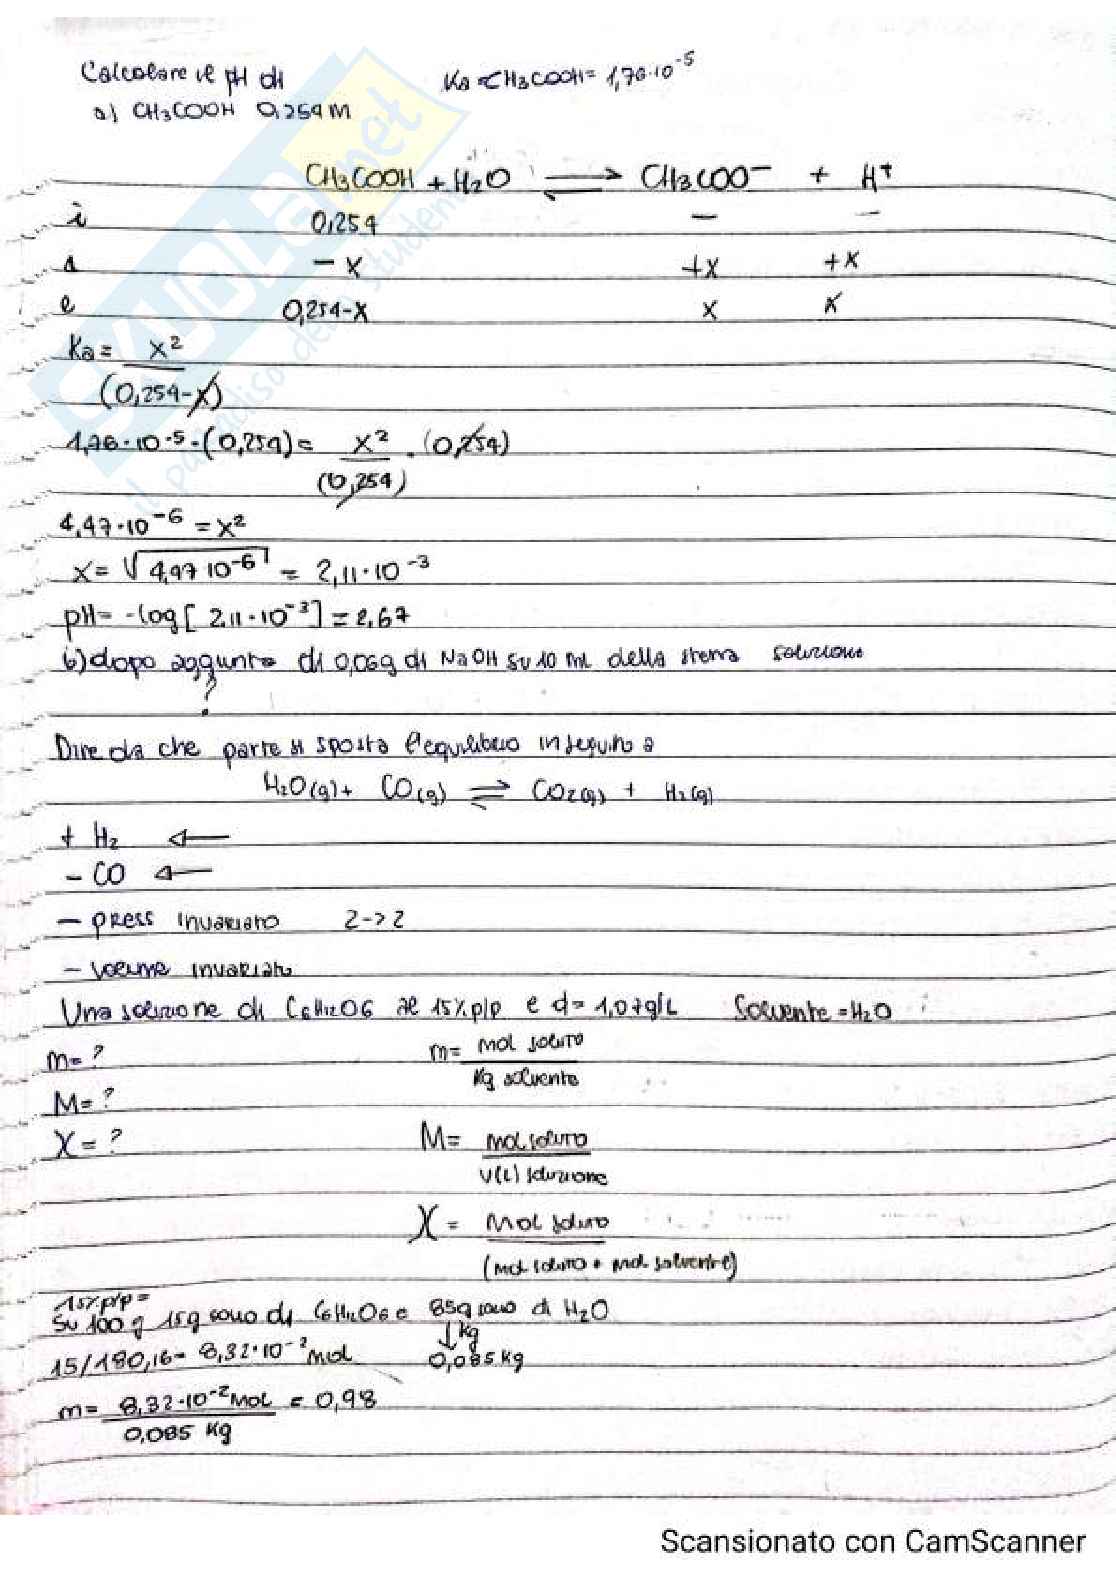 Calcolare il pH di Ka CH3COOH = 1,76·10⁻⁵
a) CH3COOH 0,254 M
CH3COOH + H2O ⇌ CH3COO⁻ + H⁺
i 0,254 — —
Δ -x +x +x
e 0,254-x x x
Ka = x² / (0,254-x)
1,76·10⁻⁵·(0,254) = x² / (0,254) · (0,254)
4,47·10⁻⁶ = x²
x = √4,47 10⁻⁶ = 2,11·10⁻³
pH = -log[2,11·10⁻³] = 2,67
b) dopo aggiunta di 0,06g di NaOH su 10 ml della stessa soluzione
?
Dire da che parte si sposta l'equilibrio in seguito a
H2O(g) + CO(g) ⇌ CO2(g) + H2(g)
+ H2 ←
- CO ←
- press invariato 2->2
- volume invariato
Una soluzione di C6H12O6 al 15% p/p e d = 1,07g/L Solvente = H2O
m = ? m = mol soluto / Kg solvente
M = ?
X = ? M = mol soluto / V(L) soluzione
X = mol soluto / (mol soluto + mol solvente)
15% p/p =
Su 100 g 15g sono di C6H12O6 e 85g sono di H2O
↓ kg
15/180,16 = 8,32·10⁻² mol 0,085 kg
m = 8,32·10⁻² mol / 0,085 Kg = 0,98
SKUOLA.net
il paradiso dello studente
Scansionato con CamScanner